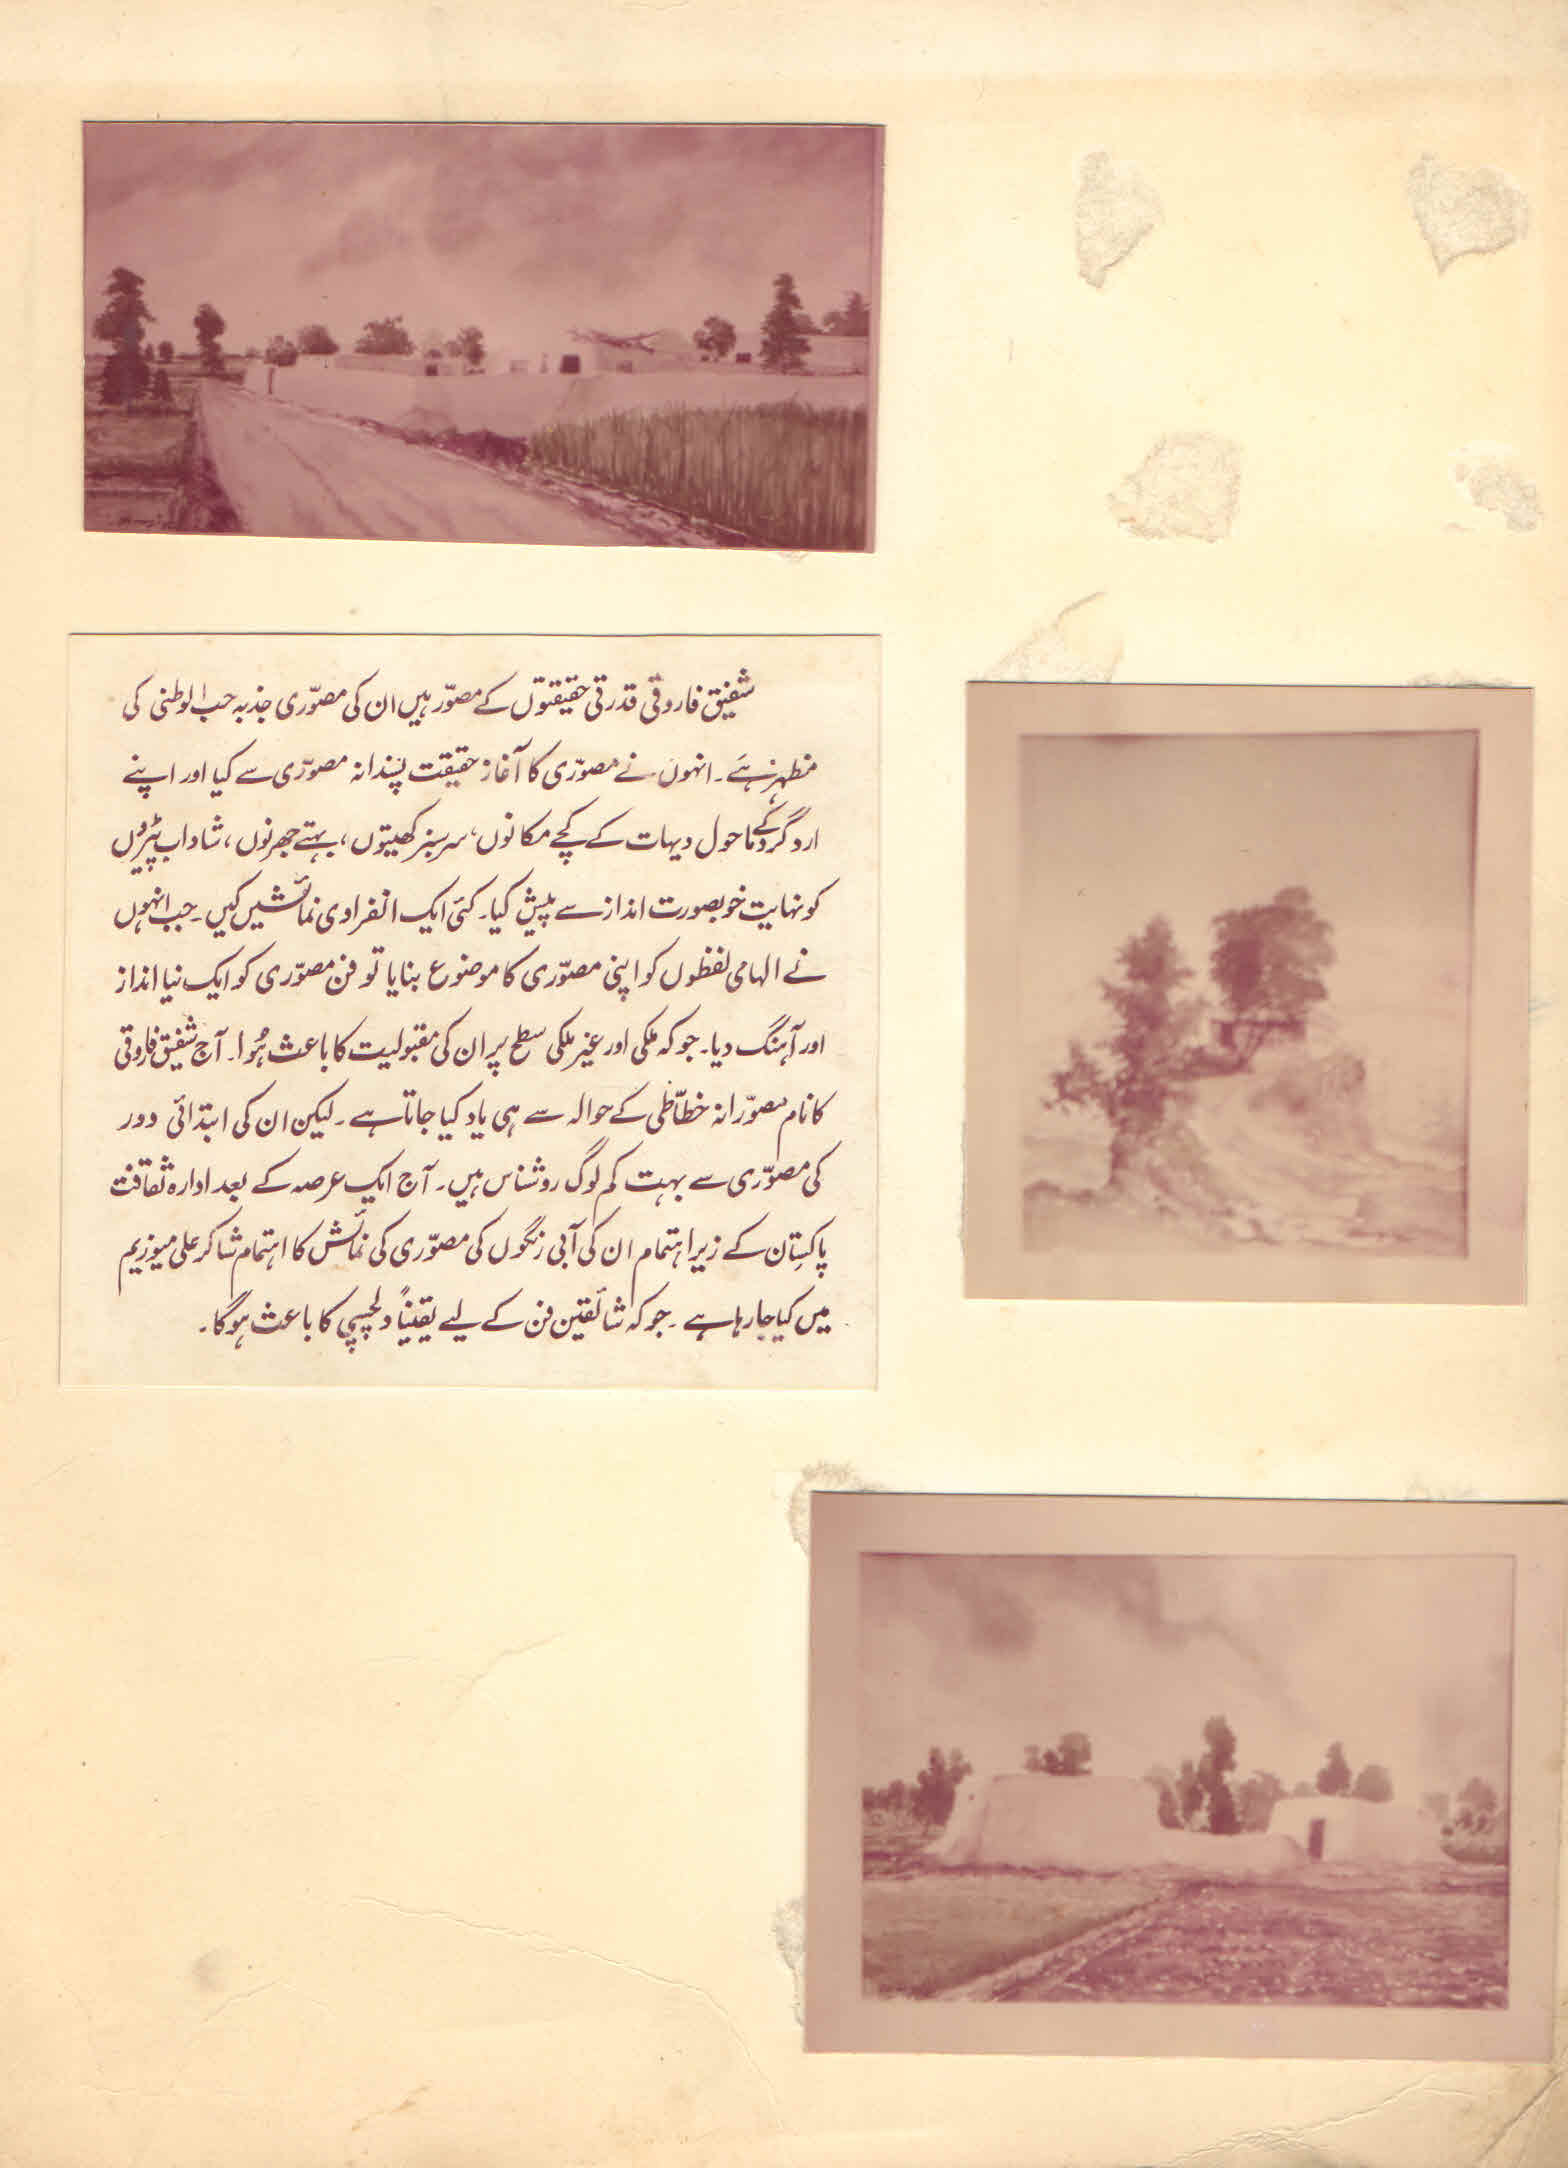 شفیق فاروقی قدرتی حقیقتوں کے مصوّر ہیں ان کی مصوّری جذبہ حب الوطنی کی
مظہر ہے۔ انہوں نے مصوّری کا آغاز حقیقت پسندانہ مصوّری سے کیا اور اپنے
ارد گرد کے ماحول دیہات کے کچے مکانوں، سرسبز کھیتوں، بہتے جھرنوں، شاداب پیڑوں
کو نہایت خوبصورت انداز سے پیش کیا۔ کئی ایک انفرادی نمائشیں کیں۔ جب انہوں
نے الہامی لفظوں کو اپنی مصوّری کا موضوع بنایا تو فن مصوّری کو ایک نیا انداز
اور آہنگ دیا۔ جو کہ ملکی اور غیر ملکی سطح پر ان کی مقبولیت کا باعث ہُوا۔ آج شفیق فاروقی
کا نام مصوّرانہ خطاّطی کے حوالہ سے ہی یاد کیا جاتا ہے۔ لیکن ان کی ابتدائی دور
کی مصوّری سے بہت کم لوگ روشناس ہیں۔ آج ایک عرصہ کے بعد ادارہ ثقافت
پاکستان کے زیر اہتمام ان کی آبی رنگوں کی مصوّری کی نمائش کا اہتمام شاکر علی میوزیم
میں کیا جا رہا ہے۔ جو کہ شائقین فن کے لیے یقیناً دلچسپی کا باعث ہوگا۔